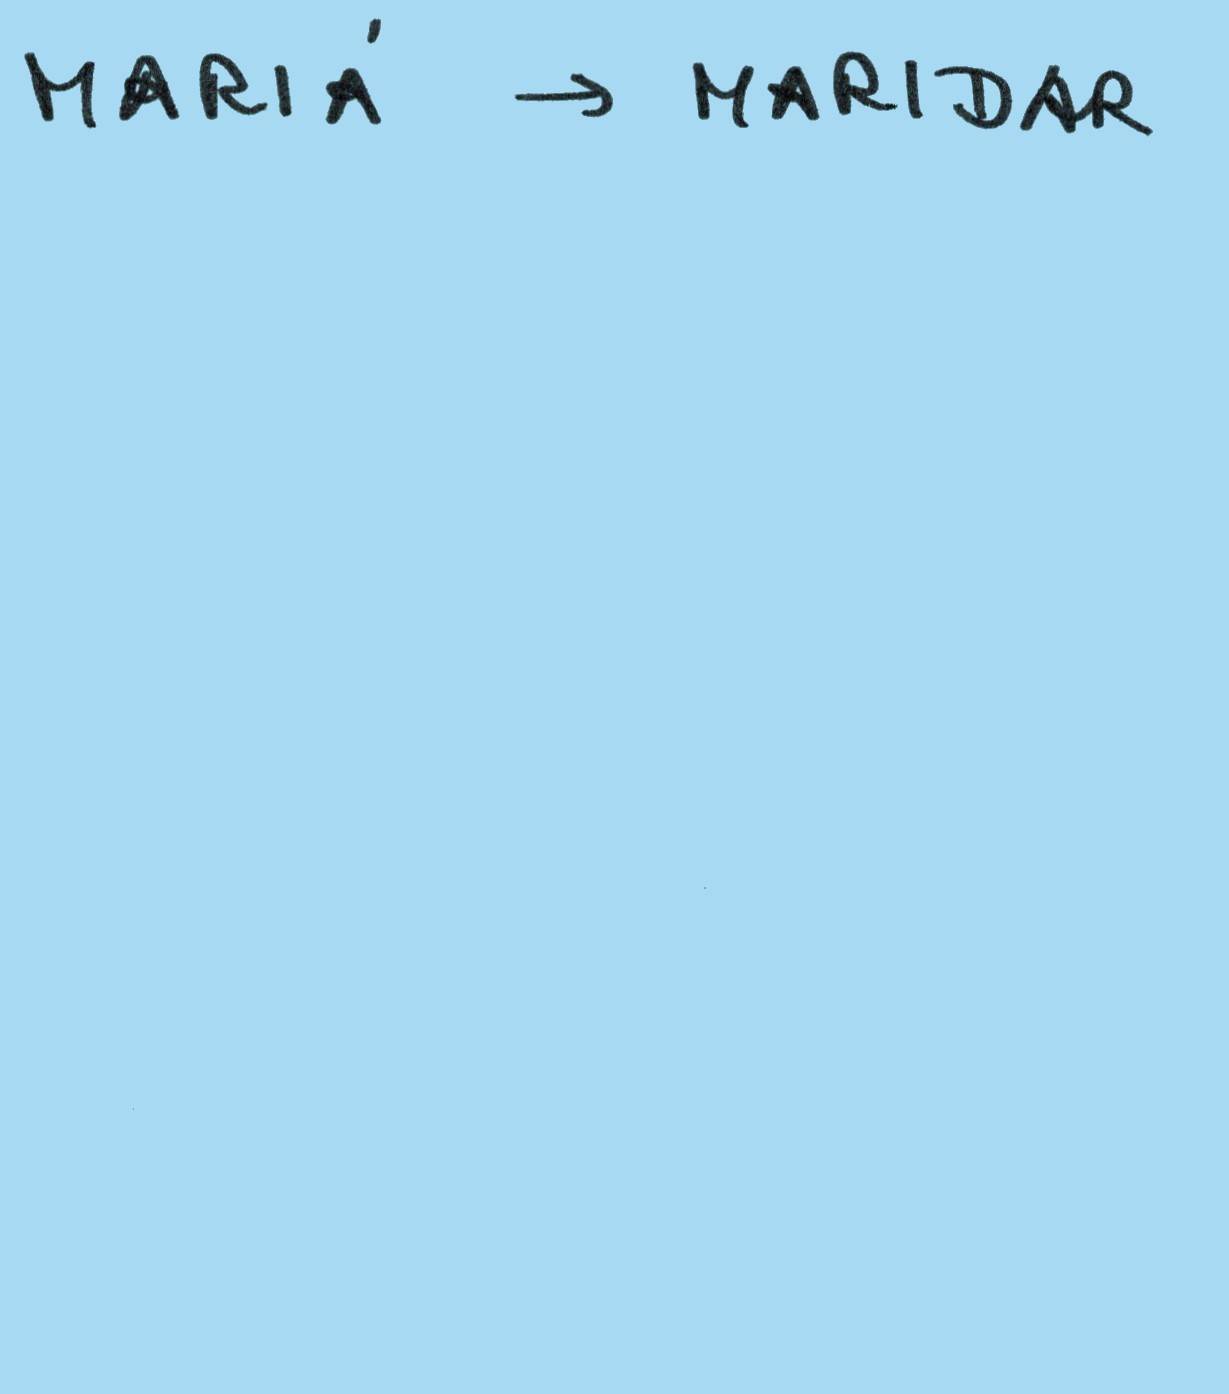 MARIÁ → MARIDAR